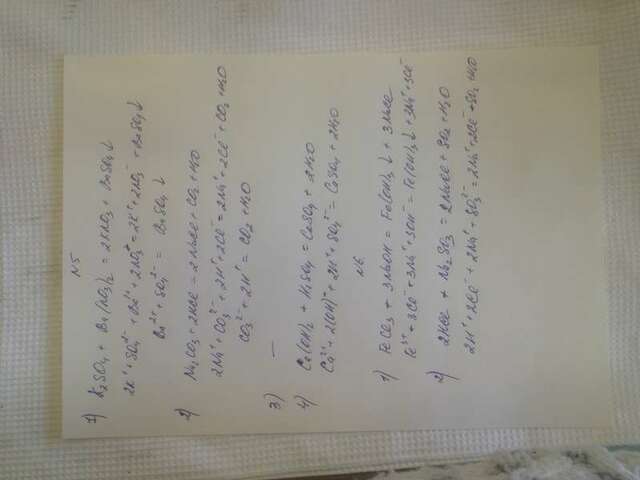 N5
1) K₂SO₄ + Ba(NO₃)₂ = 2KNO₃ + BaSO₄↓
2K⁺ + SO₄²⁻ + Ba²⁺ + 2NO₃⁻ = 2K⁺ + 2NO₃⁻ + BaSO₄↓
Ba²⁺ + SO₄²⁻ = BaSO₄↓
2) Na₂CO₃ + 2HCl = 2NaCl + CO₂ + H₂O
2Na⁺ + CO₃²⁻ + 2H⁺ + 2Cl⁻ = 2Na⁺ + 2Cl⁻ + CO₂ + H₂O
CO₃²⁻ + 2H⁺ = CO₂ + H₂O
3) —
4) Ca(OH)₂ + H₂SO₄ = CaSO₄ + 2H₂O
Ca²⁺ + 2(OH)⁻ + 2H⁺ + SO₄²⁻ = CaSO₄ + 2H₂O
N6
1) FeCl₃ + 3NaOH = Fe(OH)₃↓ + 3NaCl
Fe³⁺ + 3Cl⁻ + 3Na⁺ + 3OH⁻ = Fe(OH)₃↓ + 3Na⁺ + 3Cl⁻
2) 2HCl + Na₂SO₃ = 2NaCl + SO₂ + H₂O
2H⁺ + 2Cl⁻ + 2Na⁺ + SO₃²⁻ = 2Na⁺ + 2Cl⁻ + SO₂ + H₂O